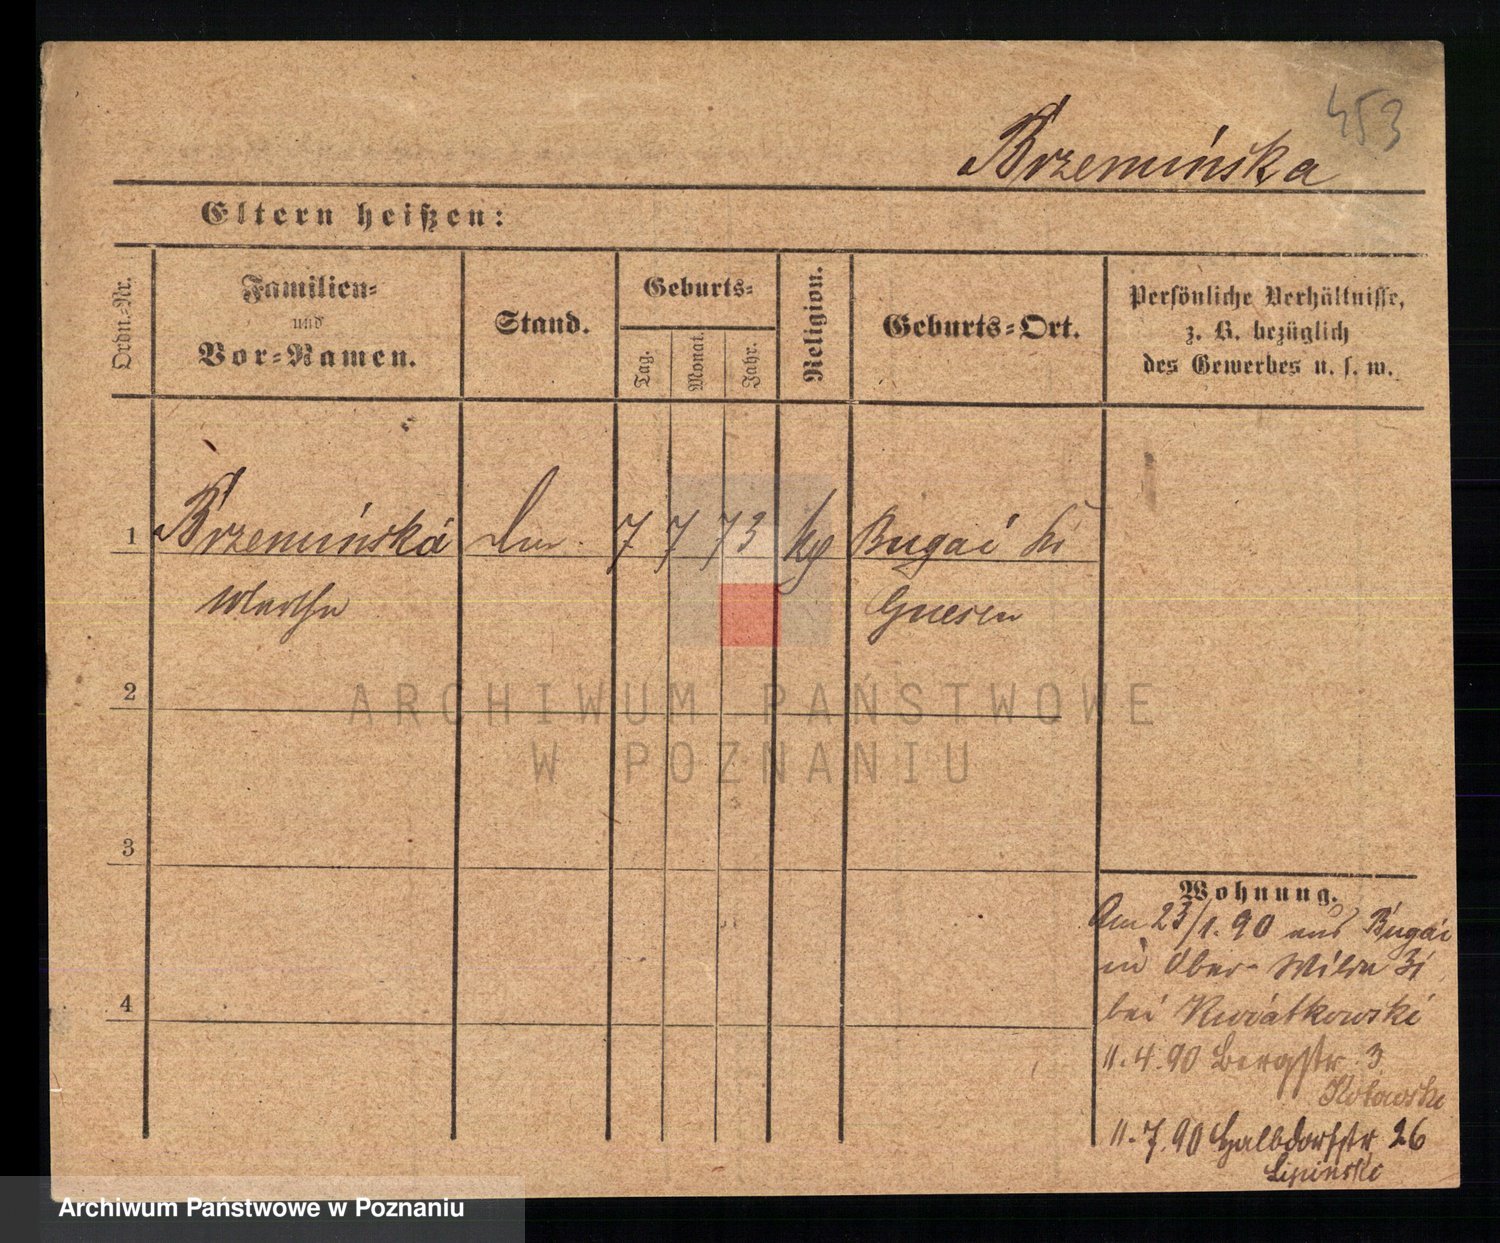 453
Brzemińska
Eltern heißen:
Ordn.-Nr.
Familien-
und
Vor-Namen.
Stand.
Geburts-
Tag.
Monat.
Jahr.
Religion.
Geburts-Ort.
Persönliche Verhältnisse,
z. B. bezüglich
des Gewerbes u. s. w.
1 Brzemińska 7 7 73 Bugai
Martha Gnesen
2
ARCHIWUM PAŃSTWOWE
W POZNANIU
3
4
Wohnung.
Am 23/1. 90 aus Bugai
in Ober-Wilda 31
bei Kwiatkowski
11.4.90 Bergstr 3
11.7.90 Halbdorfstr 26
Lipinski
Archiwum Państwowe w Poznaniu